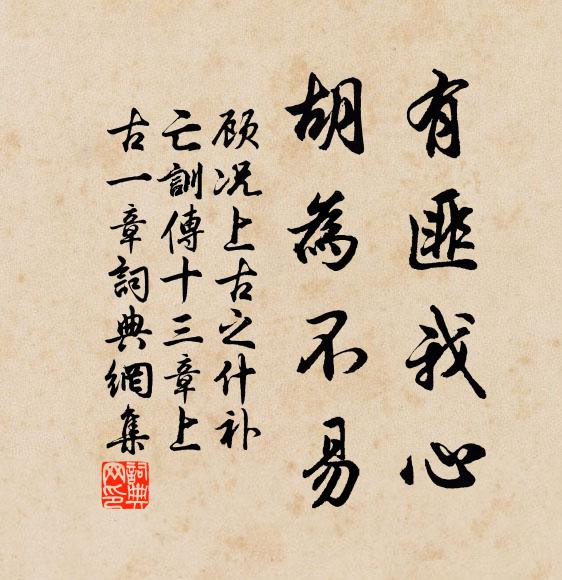 有匪我心
胡為不易
顾况上古之什补
亡訓傳十三章上
古一章詞典網集
詞典网印